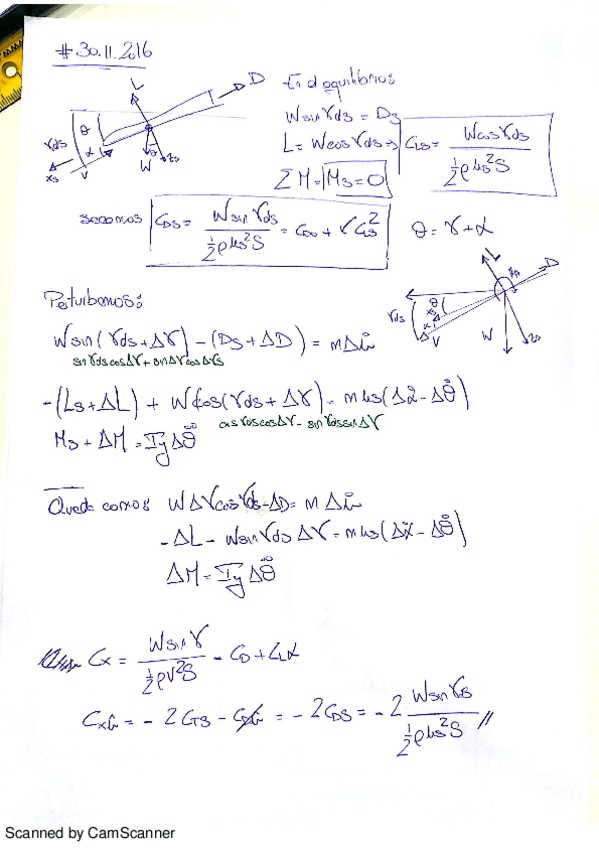 # 30.11.2016
L D
θ α γds
xs V W zs
En el equilibrio:
W sin γds = Ds
L = W cos γds → CLs = W cos γds / ½ρus²S
ΣM = Ms = 0
CDs = W sin γds / ½ρus²S = CD0 + K CLs² θ = γ + α
L D θ α γds V W zs
Perturbamos:
W sin(γds + Δγ) - (Ds + ΔD) = mΔu̇
sin γds cos Δγ + sin Δγ cos Δγs
-(Ls + ΔL) + W cos(γds + Δγ) = m us(Δα̇ - Δθ̇)
cos γds cos Δγ - sin γds sin Δγ
Ms + ΔM = Iy Δθ̈
W Δγ cos γds - ΔD = m Δu̇
-ΔL - W sin γds Δγ = m us(Δα̇ - Δθ̇)
ΔM = Iy Δθ̈
Cx = W sin γ / ½ρV²S - CD + CLα
Cxû = - 2CTs - CDû = - 2CDs = - 2 W sin γs / ½ρus²S //
Scanned by CamScanner